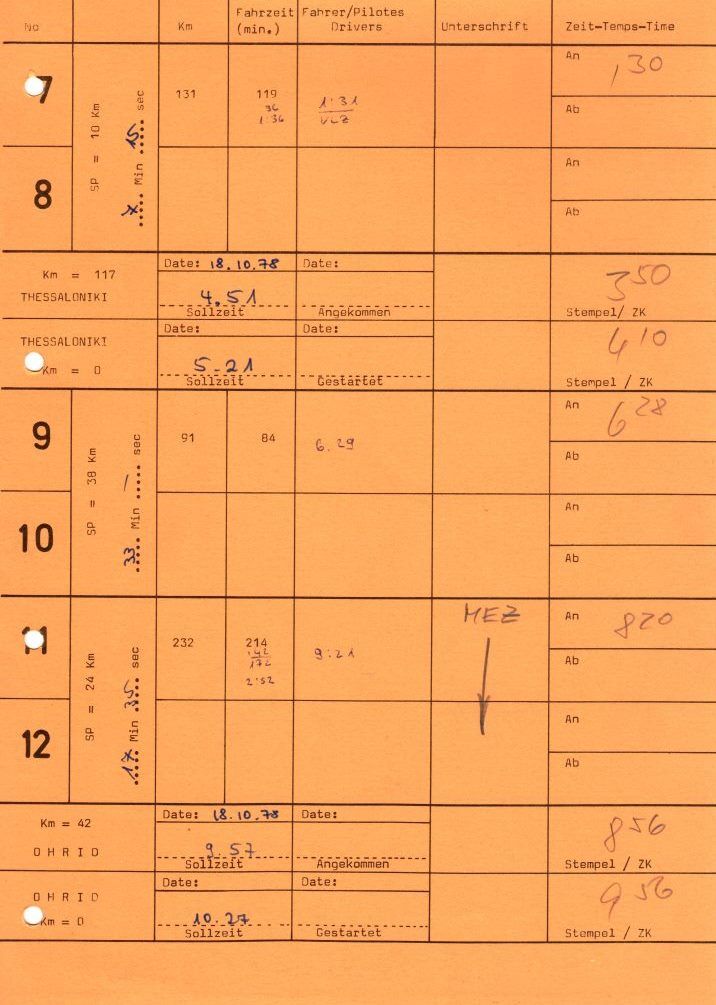 No Km Fahrzeit (min.) Fahrer/Pilotes Drivers Unterschrift Zeit-Temps-Time
7 SP = 10 Km 131 119 1:31 An ,30
..... Min ..... sec 36
1:36
Ab
8 An
Ab
Km = 117 Date: 18.10.78 Date: 350
THESSALONIKI 4.51
Sollzeit Angekommen Stempel/ ZK
THESSALONIKI Date: Date: 410
Km = 0 5-21
Sollzeit Gestartet Stempel / ZK
9 SP = 38 Km 91 84 6.29 An 628
33 Min / sec
Ab
10 An
Ab
11 SP = 24 Km 232 214 9:21 MEZ An 820
17 Min 35 sec 172
2:52
Ab
12 An
Ab
Km = 42 Date: 18.10.78 Date: 856
OHRID 9.57
Sollzeit Angekommen Stempel / ZK
OHRID Date: Date: 956
Km = 0 10.27
Sollzeit Gestartet Stempel / ZK